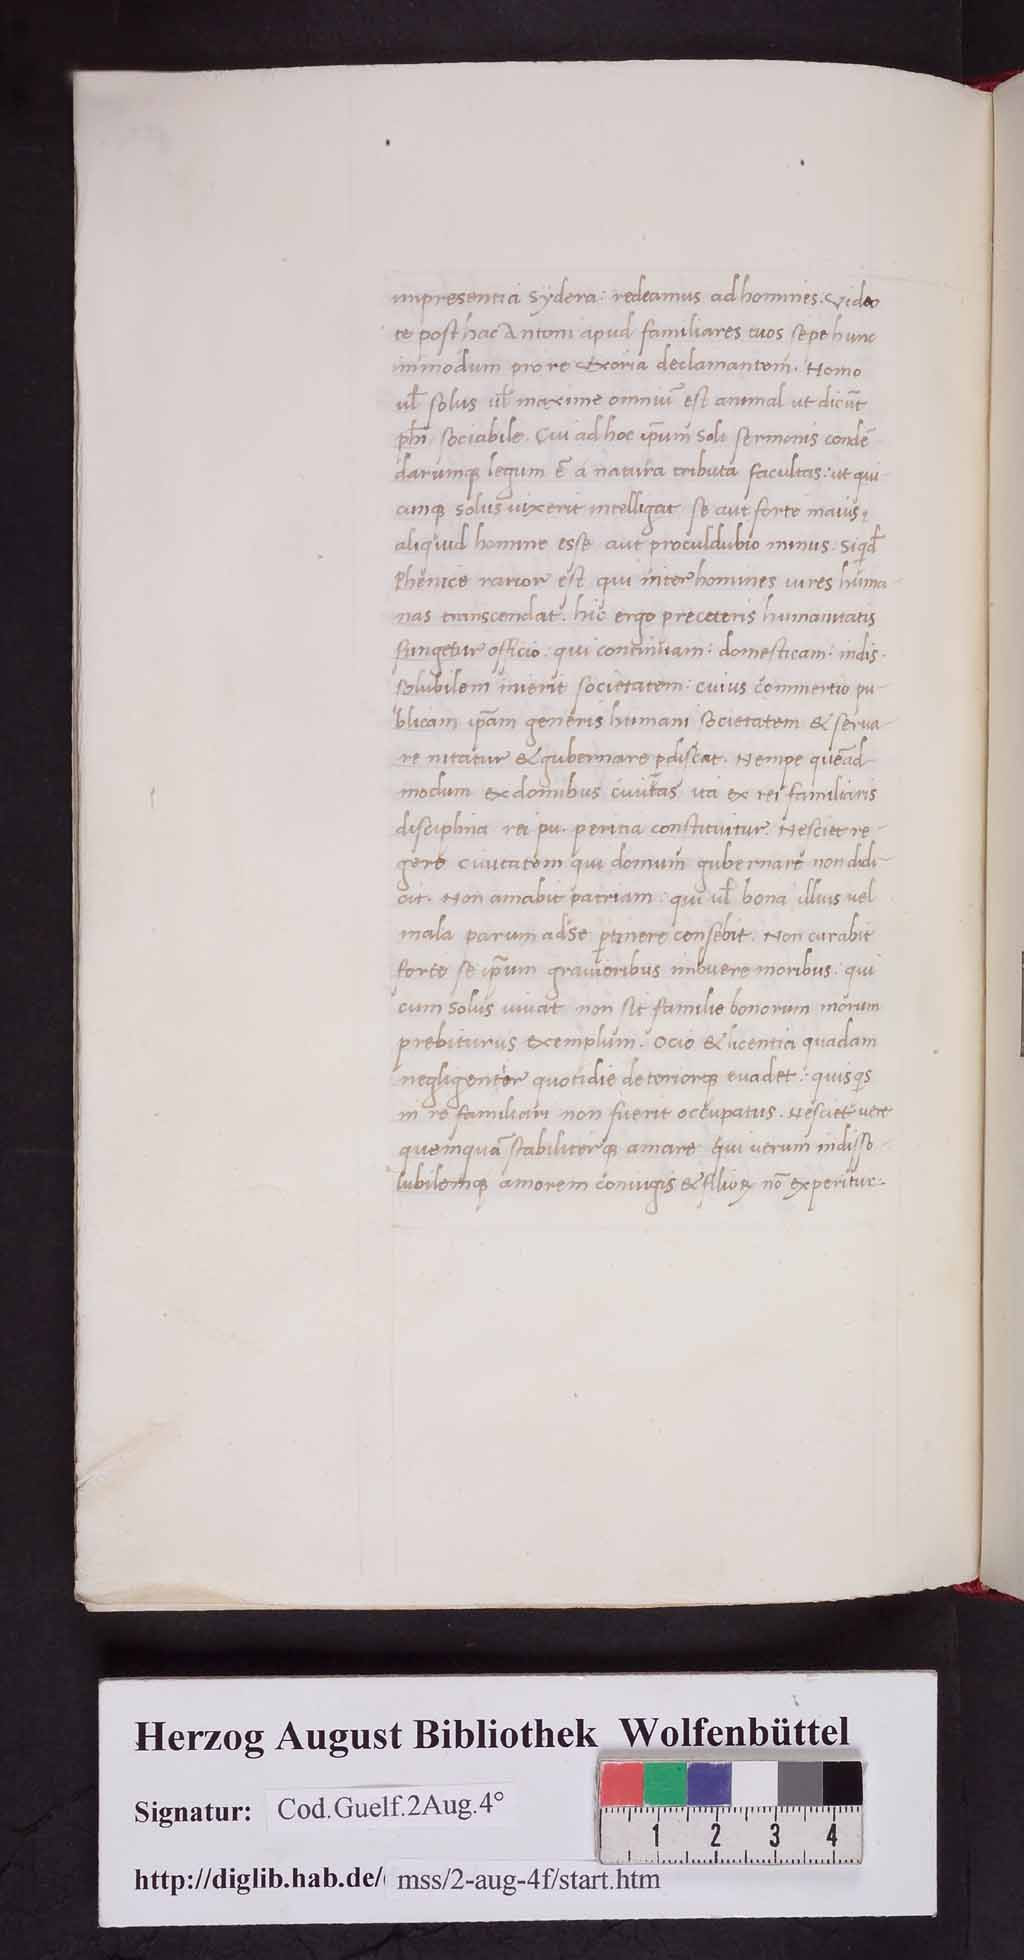 impresentia Sydera: redeamus ad homines. Video
te post hac Antoni apud familiares tuos sepe hunc
inmodum pro re uxoria declamantem. Homo
ul̃ solus ul̃ maxime omniũ est animal ut dicũt
phĩ sociabile. Cui ad hoc ip̃um soli sermonis condẽ
darumq; legum ẽ a natura tributa facultas: ut qui
cunq; solus vixerit intelligat se aut forte maius
aliquid homine esse aut proculdubio minus. Siqd̃
Phenice rarior est qui inter homines vires huma-
nas transcendat. hic ergo preceteris humanitatis
fungetur officio: qui continuam: domesticam: indis-
solubilem inierit societatem: cuius commertio pu-
blicam ip̃am generis humani societatem & serva-
re nitatur & gubernare p̱discat. Nempe quẽad
modum ex domibus civitas ita ex rei familiaris
disciplina rei pu. peritia constituitur. Nesciet re-
gere civitatem qui domum gubernare non didi-
cit. Non amabit patriam: qui ul̃ bona illius vel
mala parum adse p̱tinere censebit. Non curabit
forte se ip̃um gravioribus imbuere moribus: qui
cum solus vivat non sit familie bonorum morum
prebiturus exemplum. Ocio & licentia quadam
negligenter quotidie deteriorq; evadet: quisq̃s
in re familiari non fuerit occupatus. Nesciet vere
quemquã stabiliterq; amare qui verum indisso-
lubilemq; amorem coniugis & filioꝝ nõ experitur.
Herzog August Bibliothek Wolfenbüttel
Signatur: Cod.Guelf.2Aug.4°
1 2 3 4
http://diglib.hab.de/ mss/2-aug-4f/start.htm